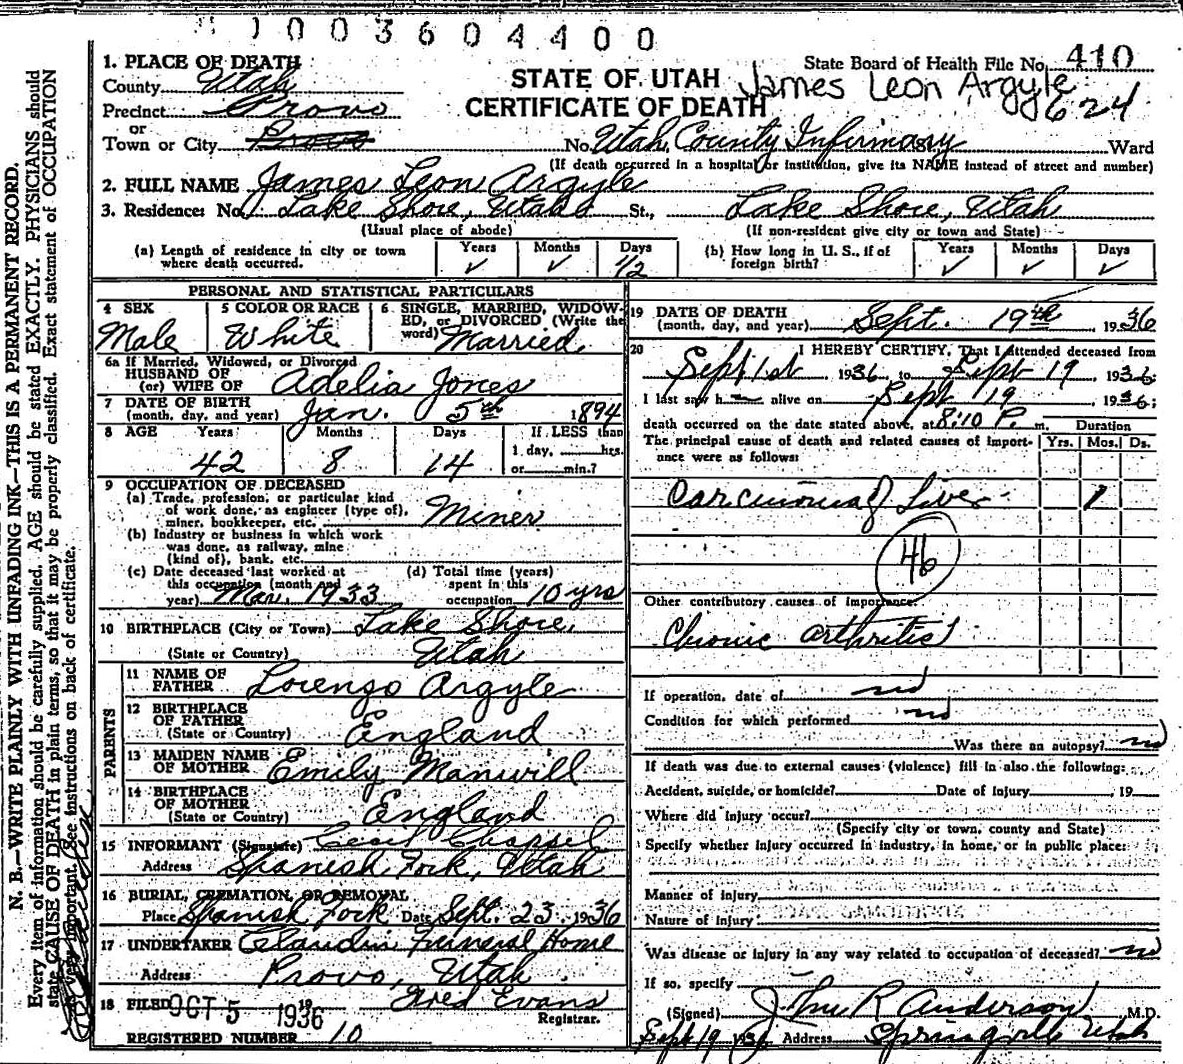 1003604400
State Board of Health File No. 410
1. PLACE OF DEATH
County Utah
STATE OF UTAH
James Leon Argyle
Precinct Provo
CERTIFICATE OF DEATH
624
or
Town or City Provo
No. Utah County Infirmary St. Ward
(If death occurred in a hospital or institution, give its NAME instead of street and number)
2. FULL NAME James Leon Argyle
3. Residence: No. Lake Shore, Utah St., Lake Shore, Utah
(Usual place of abode)
(If non-resident give city or town and State)
(a) Length of residence in city or town where death occurred.
Years ✓ Months ✓ Days 1/2
(b) How long in U. S., if of foreign birth?
Years ✓ Months ✓ Days ✓
PERSONAL AND STATISTICAL PARTICULARS
4 SEX
Male
5 COLOR OR RACE
White
6 SINGLE, MARRIED, WIDOW-
ED, or DIVORCED (Write the
word) Married
6a If Married, Widowed, or Divorced
HUSBAND OF
(or) WIFE OF Adelia Jones
7 DATE OF BIRTH
(month, day, and year) Jan. 5th 1894
8 AGE Years Months Days If LESS than
42 8 14
1 day, hrs.
or min.?
9 OCCUPATION OF DECEASED
(a) Trade, profession, or particular kind
of work done, as engineer (type of),
miner, bookkeeper, etc. Miner
(b) Industry or business in which work
was done, as railway, mine
(kind of), bank, etc.
(c) Date deceased last worked at
this occupation (month and
year) Mar. 1933
(d) Total time (years)
spent in this
occupation 10 yrs
10 BIRTHPLACE (City or Town) Lake Shore,
(State or Country) Utah
PARENTS
11 NAME OF
FATHER Lorenzo Argyle
12 BIRTHPLACE
OF FATHER
(State or Country) England
13 MAIDEN NAME
OF MOTHER Emily Manwill
14 BIRTHPLACE
OF MOTHER
(State or Country) England
15 INFORMANT (Signature) Cecil Chappel
Address Spanish Fork, Utah
16 BURIAL, CREMATION, OR REMOVAL
Place Spanish Fork Date Sept. 23, 1936
17 UNDERTAKER Claudin Funeral Home
Address Provo, Utah
18 FILED OCT 5 1936 19 Fred Evans
Registrar.
REGISTERED NUMBER 10
19 DATE OF DEATH
(month, day, and year) Sept. 19th 1936
20 I HEREBY CERTIFY, That I attended deceased from
Sept 1st 1936, to Sept 19, 1936;
I last saw h alive on Sept 19 1936;
death occurred on the date stated above, at 8:10 P. m.
Duration
The principal cause of death and related causes of import-
ance were as follows:
Yrs. Mos. Ds.
Carcinoma of Liver 1
46
Other contributory causes of importance:
Chronic arthritis
If operation, date of no
Condition for which performed no
Was there an autopsy? no
If death was due to external causes (violence) fill in also the following:
Accident, suicide, or homicide? Date of injury , 19
Where did injury occur?
(Specify city or town, county and State)
Specify whether injury occurred in industry, in home, or in public place:
Manner of injury
Nature of injury
Was disease or injury in any way related to occupation of deceased? no
If so, specify
(Signed) Jno R Anderson M.D.
Sept 19 1936 Address Springville Utah
N. B.—WRITE PLAINLY WITH UNFADING INK—THIS IS A PERMANENT RECORD.
Every item of information should be carefully supplied. AGE should be stated EXACTLY. PHYSICIANS should
state CAUSE OF DEATH in plain terms, so that it may be properly classified. Exact statement of OCCUPATION
is very important. See instructions on back of certificate.